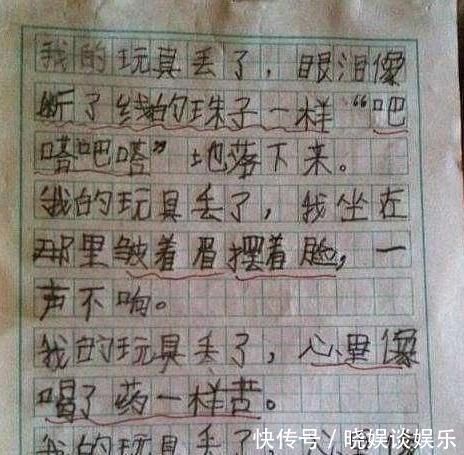 我的玩具丢了，眼泪像
断了线的珠子一样“吧
嗒吧嗒”地落下来。
我的玩具丢了，我坐在
那里皱着眉摆着脸，一
声不响。
我的玩具丢了，心里像
喝了药一样苦。
我的玩具丢了，
快传号/晓娱谈娱乐